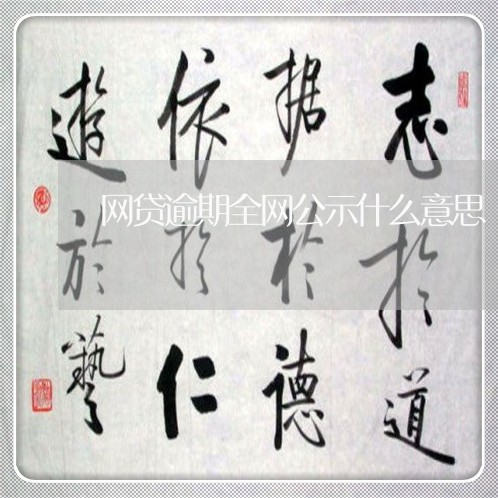 志於道
据於德
依於仁
遊於藝
网贷逾期全网公示什么意思